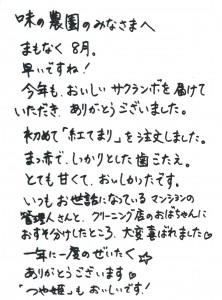 味の農園のみなさまへ
まもなく8月。
早いですね!
今年も、おいしいサクランボを届けて
いただき、ありがとうございました。
初めて「紅てまり」を注文しました。
まっ赤で、しっかりとした歯ごたえ。
とても甘くて、おいしかったです。
いつもお世話になっているマンションの
管理人さんと、クリーニング店のおばちゃんに
おすそ分けしたところ、大変喜ばれました♡
一年に一度のぜいたく☆
ありがとうございます♡
「つや姫」もおいしいです!